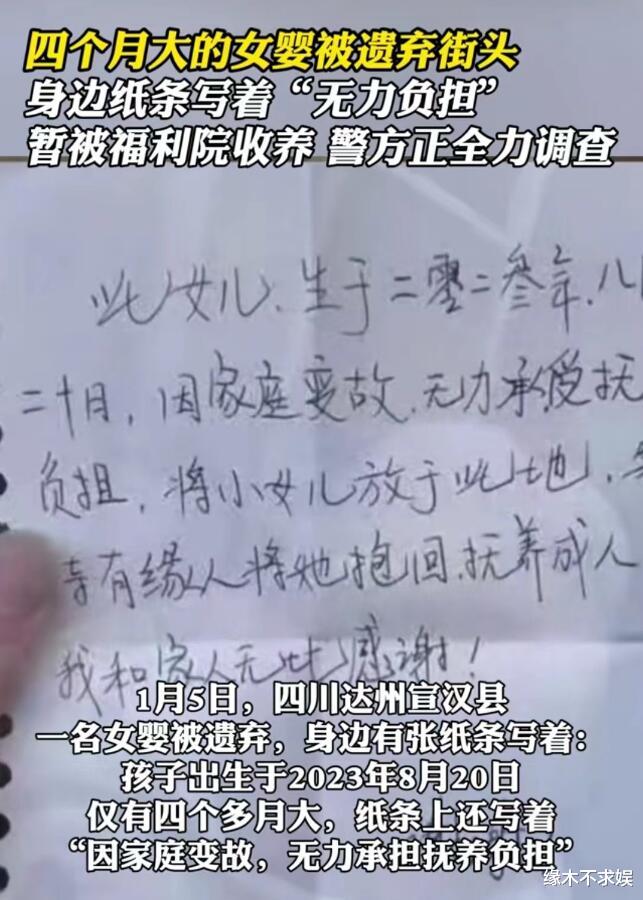 四个月大的女婴被遗弃街头
身边纸条写着“无力负担”
暂被福利院收养 警方正全力调查
此女儿、生于二零二叁年、八
二十日，因家庭变故、无力承受抚
负担，将小女儿放于此地，
有缘人将她抱回、抚养成人
我和家人无比感谢！
1月5日，四川达州宣汉县
一名女婴被遗弃，身边有张纸条写着：
孩子出生于2023年8月20日
仅有四个多月大，纸条上还写着
“因家庭变故，无力承担抚养负担”
缘木不求娱